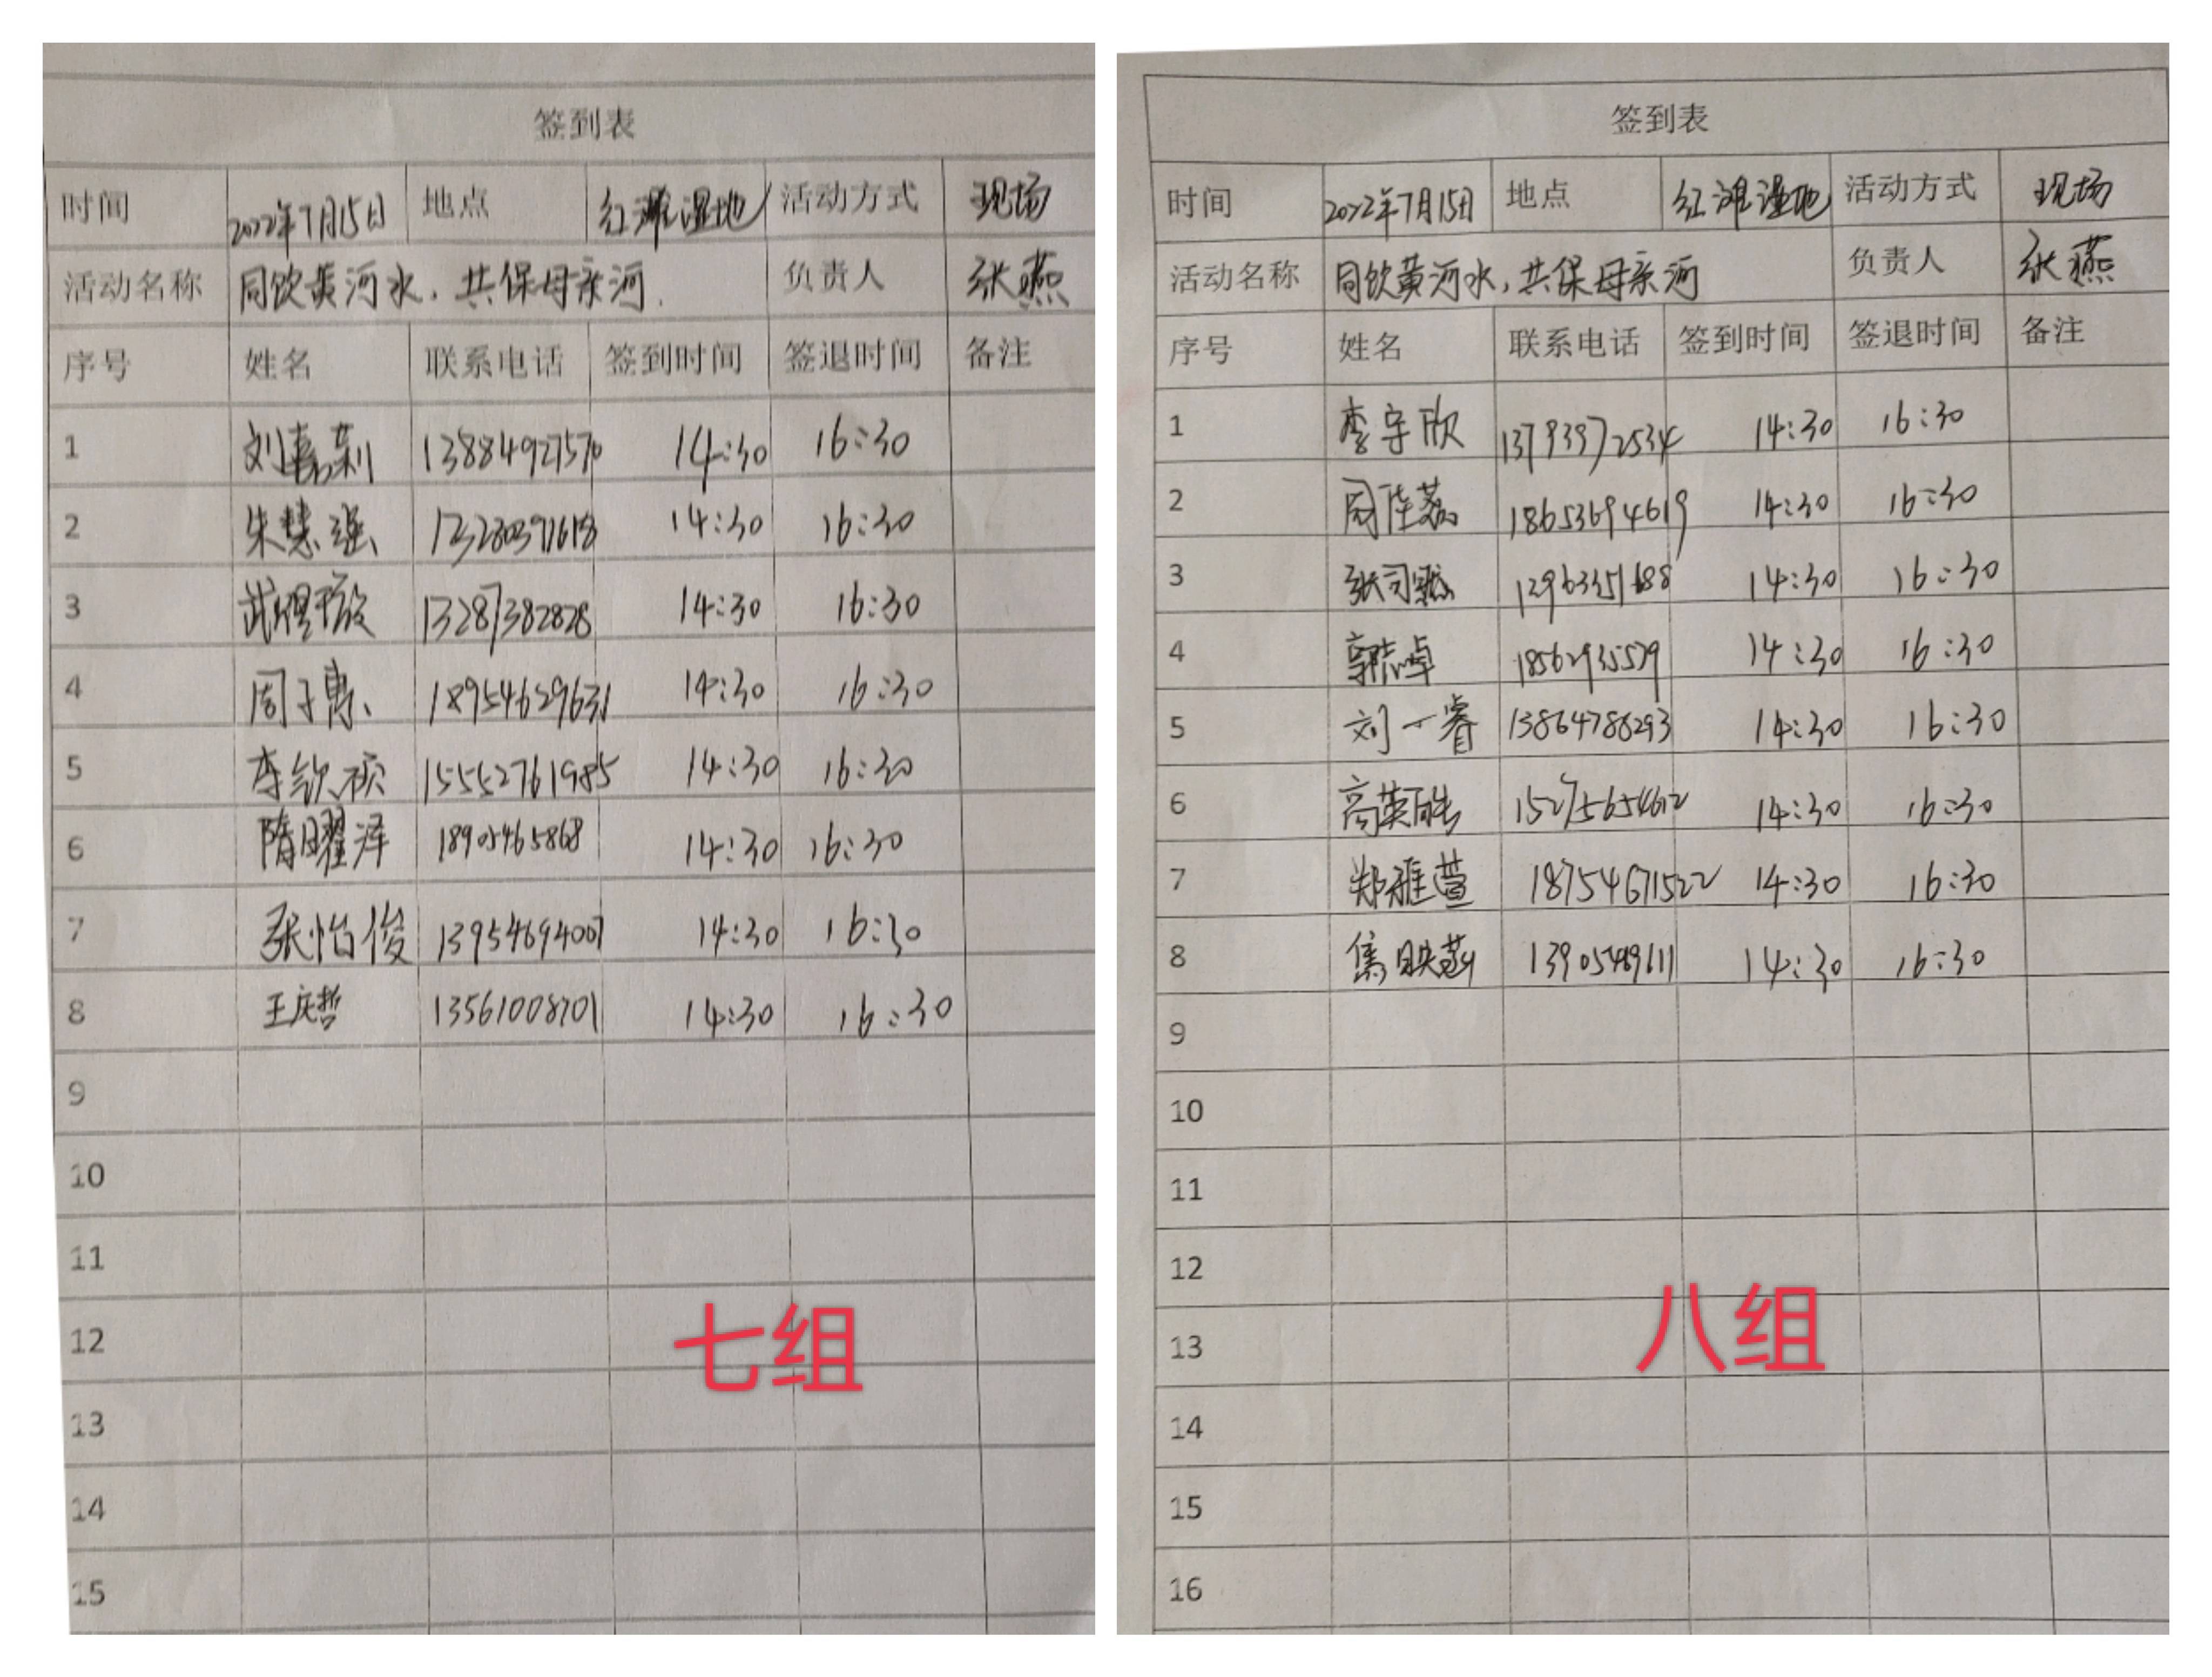 签到表
时间 2022年7月15日 地点 红滩湿地 活动方式 现场
活动名称 同饮黄河水，共保母亲河. 负责人 张燕
序号 姓名 联系电话 签到时间 签退时间 备注
1 刘嘉莉 13884927570 14:30 16:30
2 朱慧强 14:30 16:30
3 13287382828 14:30 16:30
4 周子惠 18954629631 14:30 16:30
5 李钦祯 15552761985 14:30 16:30
6 隋曜泽 14:30 16:30
7 张怡俊 13954694007 14:30 16:30
8 王庆哲 13561008701 14:30 16:30
9
10
11
12
13
14
15
七组
签到表
时间 2022年7月15日 地点 红滩湿地 活动方式 现场
活动名称 同饮黄河水，共保母亲河 负责人 张燕
序号 姓名 联系电话 签到时间 签退时间 备注
1 李宇欣 13793972534 14:30 16:30
2 周佳荔 18653694619 14:30 16:30
3 14:30 16:30
4 14:30 16:30
5 刘一睿 13864788293 14:30 16:30
6 高英皓 15275654612 14:30 16:30
7 郑雅萱 18754671522 14:30 16:30
8 焦映菡 14:30 16:30
9
10
11
12
13
14
15
16
八组